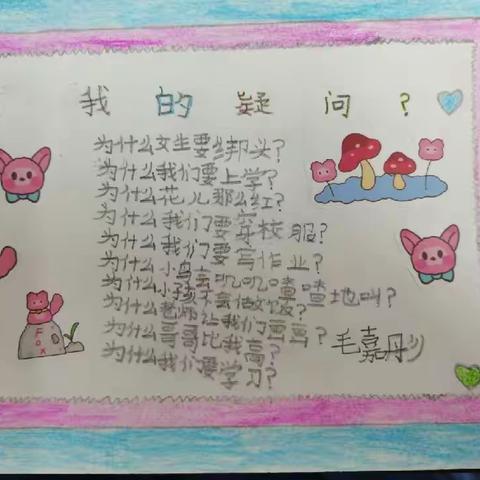 我的疑问?
为什么女生要绑头?
为什么我们要上学?
为什么花儿那么红?
为什么我们要穿校服?
为什么我们要写作业?
为什么小鸟会叽叽喳喳地叫?
为什么小孩不会做饭?
为什么老师让我们画画?
为什么哥哥比我高?
为什么我们要学习?
毛嘉彤
Fox